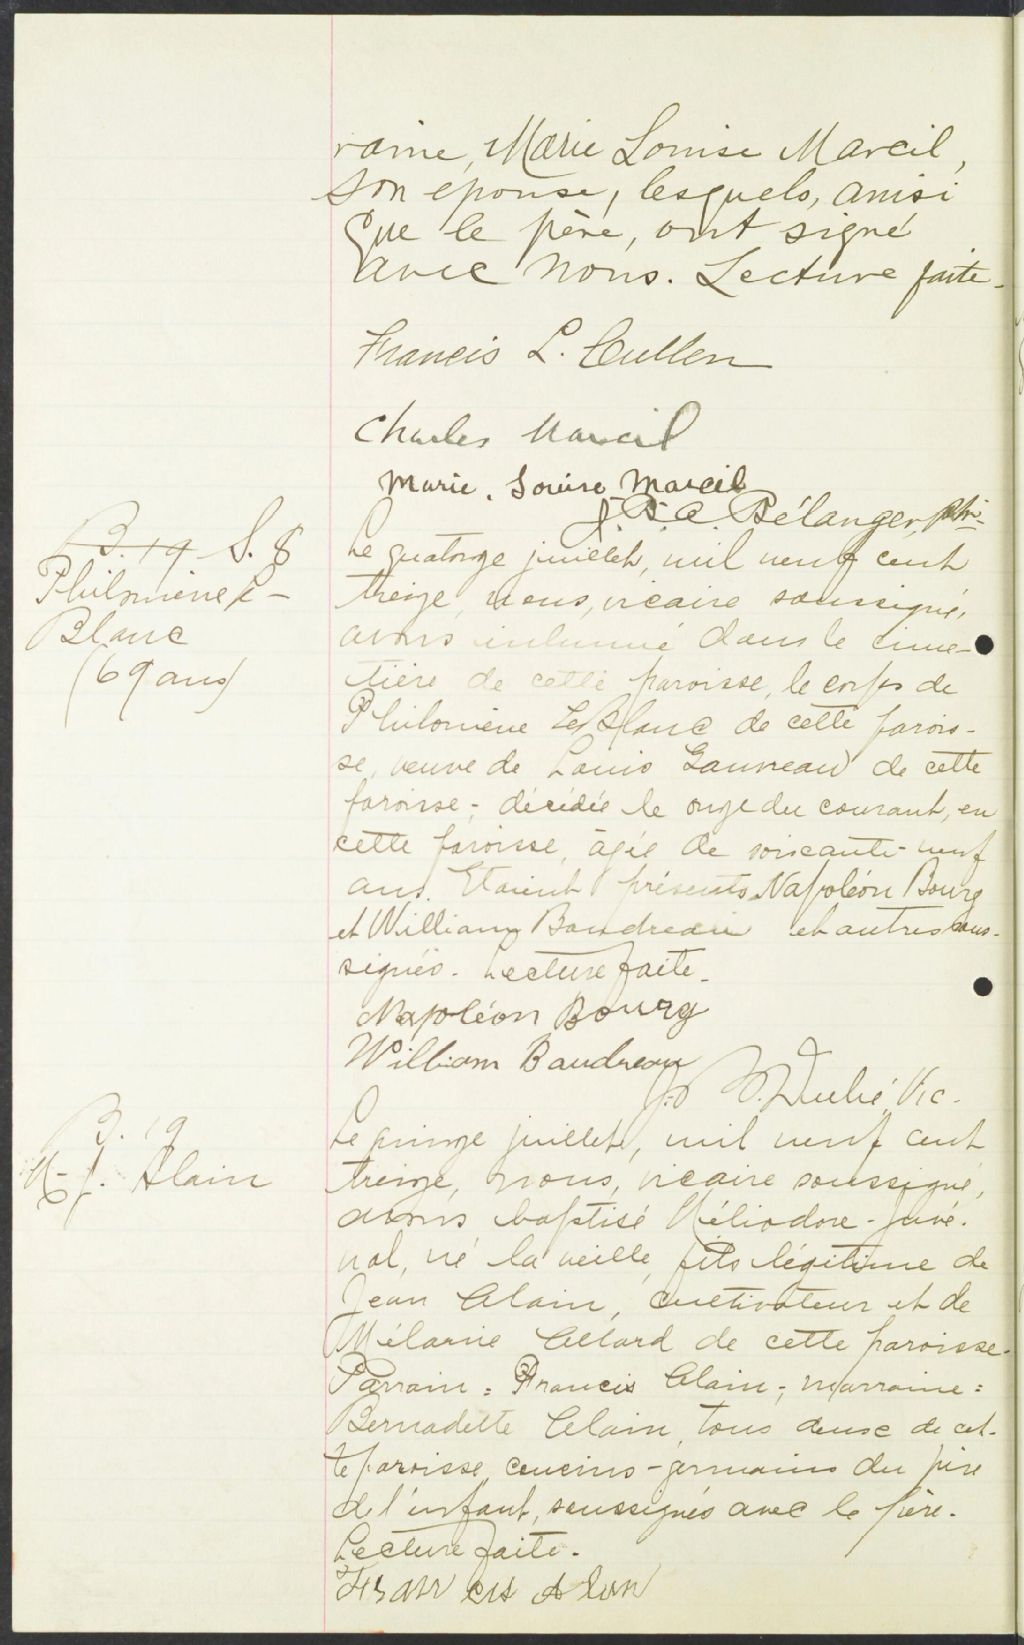 raine, Marie Louise Marcil,
son épouse, lesquels, ainsi
que le père, ont signé
avec nous. Lecture faite.
Francis L. Cullen
Charles Marcil
Marie. Louise Marcil
J. Bélanger, ptre
B. 19 S. 8
Philomène L-
Blanc
(69 ans)
Le quatorze juillet, mil neuf cent
treize, nous, vicaire soussigné,
avons inhumé dans le cime-
tière de cette paroisse, le corps de
Philomène LeBlanc de cette parois-
se, veuve de Louis Gauvreau de cette
paroisse; décédée le onze du courant, en
cette paroisse, âgée de soixante-neuf
ans. Etaient présents Napoléon Bourg
et William Baudreau et autres sous-
signés. Lecture faite.
Napoléon Bourg
William Baudreau
Vic.
B. 19
H-J. Alain
Le quinze juillet, mil neuf cent
treize, nous, vicaire soussigné,
avons baptisé Héliodore-Juvé-
nal, né la veille, fils légitime de
Jean Alain, cultivateur et de
Mélanie Allard de cette paroisse.
Parrain: Francis Alain; marraine:
Bernadette Alain, tous deux de cet-
te paroisse, cousins-germains du père
de l'enfant, soussignés avec le père.
Lecture faite.
Francis Alain